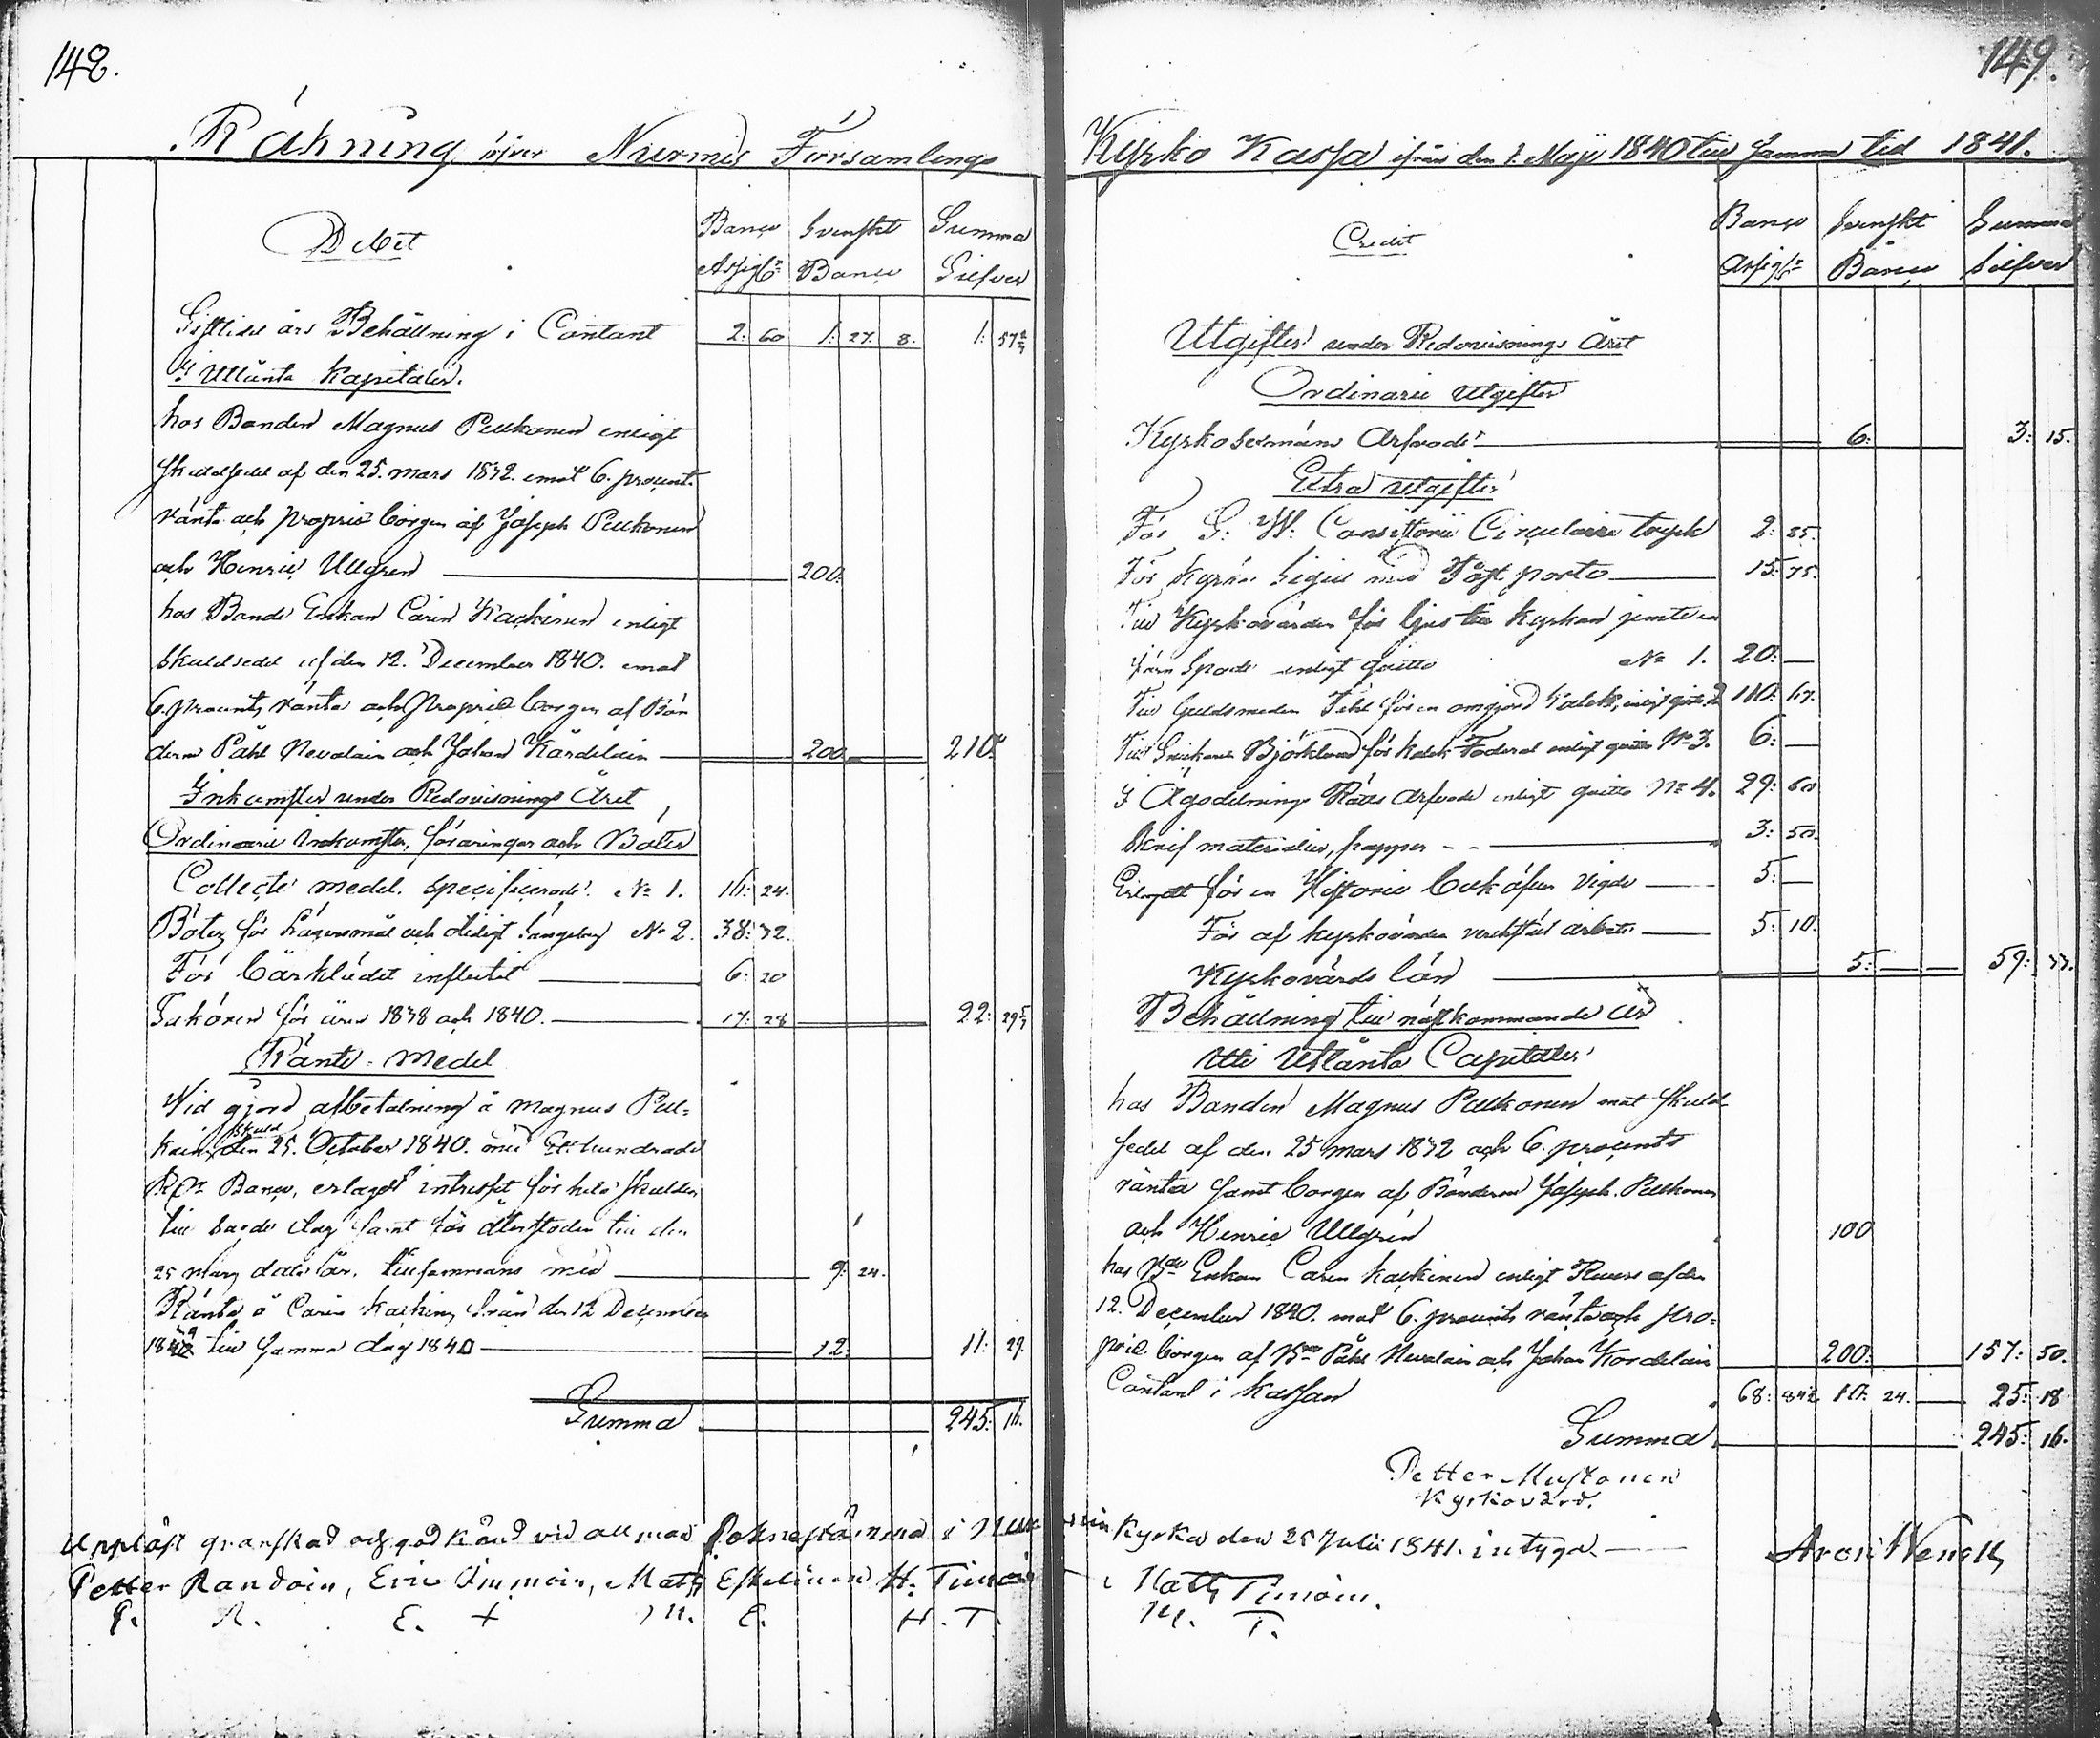 148.
Räkning öfver Nurmis Församlings
Debet
Banco Assign: Svenskt Banco Summa Silfver
Sistlidet års Behållning i Contant 2: 60 1: 27. 8. 1: 57 2/7
I Utlånta Kapitaler.
hos Bonden Magnus Pulkonen enligt
skuldsedel af den 25. mars 1832. emot 6. procents
ränta och proprie borgen af Joseph Pulkonen
och Henric Ullgren 200.
hos Bonde Enkan Carin Kackinen enligt
skuldsedel af den 12. December 1840. emot
6. procents ränta och proprie borgen af Bön
derne Påhl Nevalain och Johan Kärdelain 200 210.
Inkomster under Redovisnings Året
Ordinarie Inkomster, föräringar och Böter
Collecte medel. specificerade. No 1. 16: 24.
Böter för Lägersmål och otidigt sängelag No 2. 38: 32.
För Bårklädet influtit 6: 20
Sakören för åren 1838 och 1840. 17: 28 22: 29 5/7
Ränte-Medel
Wid gjord afbetalning å Magnus Pul=
kains skuld den 25. October 1840. med Ett hundrade
R:dr Banco, erlagdt intresset för hela skulden
till sagde dag samt för återstoden till den
25 mars detta år, tillsammans med 9: 24.
Ränta å Carin Kackins lån från den 12 December
1839 till samma dag 1840 12. 11: 29.
Summa 245: 16.
Uppläst granskad och godkänd vid allmän Sokne stämma i Nur
Petter Randoin, Eric Immoin, Mats Eskelinen H. Timoin
P. R. E. + M. E. H. T.
149.
Kyrko Kassa ifrån den 1. Maji 1840 till samma tid 1841.
Credit
Banco Assign: Svenskt Banco Summa Silfver
Utgifter under Redovisnings Året
Ordinarie Utgifter
Kyrkobetjäns Arfvode 6: 3: 15.
Extra utgifter
För G. W. Consistorii Circulairs tryck 2: 85.
För Kyrko Sigill med Post porto 15: 75.
Till Kyrkovärden för ljus till kyrkan jemte en
järn Spade enligt qvitto No 1. 20:
Till Guldsmeden för en omgjord Kalck, enligt qvitto 2 110: 67.
Till Snickaren Björklund för Kalck Foderal enligt qvitto No 3. 6:
I Ägodelnings Rätts Arfvode enligt qvitto No 4. 29: 60
Skrif materialier, papper 3: 50.
Erlagdt för en Historie bok öfver Vigde 5:
För af kyrkovärden verkstäldt arbete 5: 10.
Kyrkovärds lön 5: 59: 33.
Behållning till nästkommande år
Uti Utlånta Capitaler
hos Bonden Magnus Pulkonen mot skuld
sedel af den 25 mars 1832 och 6. procents
ränta samt borgen af Bönderne Joseph Pulkonen
och Henric Ullgren 100
hos Bde Enkan Carin Kackinen enligt Revers af den
12. December 1840. mot 6. procents ränta och pro=
prie borgen af Bne Påhl Nevalain och Johan Kordelain 200: 157: 50.
Contant i Kassan 68: 10: 24. 25: 18
Summa 245: 16.
Petter Mustonen
Kyrkovärd.
mis Kyrka den 25 Julii 1841. intyga
Aron Wenell,
Mats Timoin.
M. T.